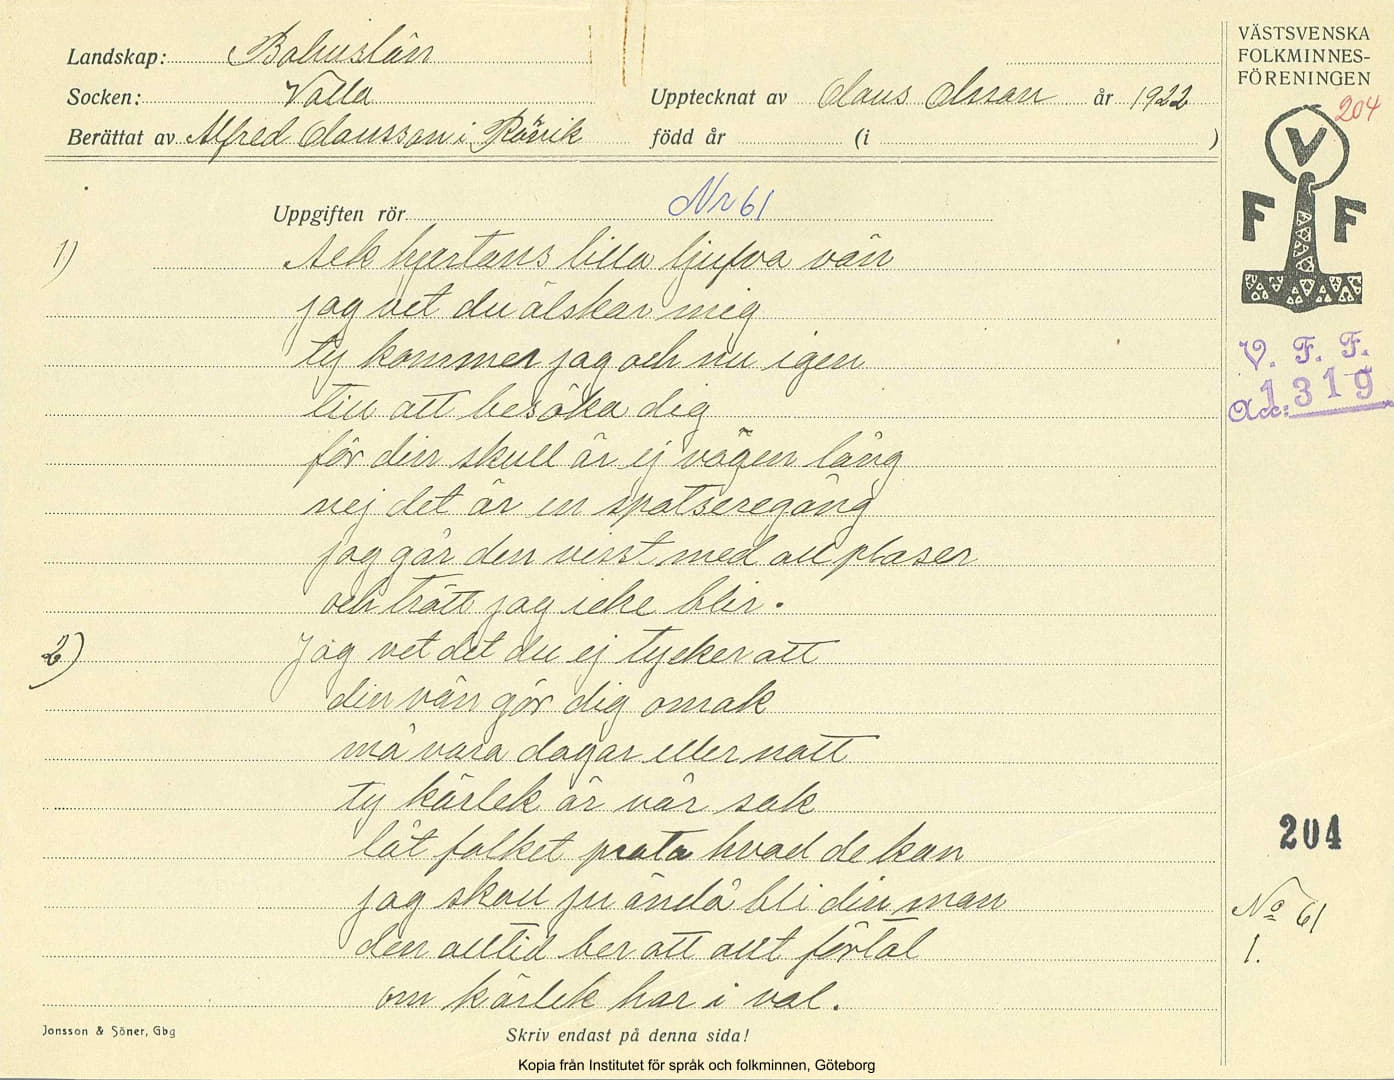 Landskap: Bohuslän
Socken: Valla
Upptecknat av Claus Olsson år 1922
Berättat av Alfred Clausson i Rörvik
född år (i )
VÄSTSVENSKA
FOLKMINNES-
FÖRENINGEN
204
V
F F
V. F. F.
Acc: 1319
Uppgiften rör Nr 61
1) Ack hjertans lilla ljufva vän
jag vet du älskar mig
ty kommer jag och nu igen
till att besöka dig
för din skull är ej vägen lång
nej det är en spatseregång
jag går den visst med all plaser
och trött jag icke blir.
2) Jag vet det du ej tycker att
din vän gör dig omak
må vara dagar eller natt
ty kärlek är vår sak
låt folket prata hvad de kan
jag skall ju ändå bli din man
den alltid ber att allt förtal
om kärlek har i val.
204
No 61
1.
Jonsson & Söner, Gbg
Skriv endast på denna sida!
Kopia från Institutet för språk och folkminnen, Göteborg